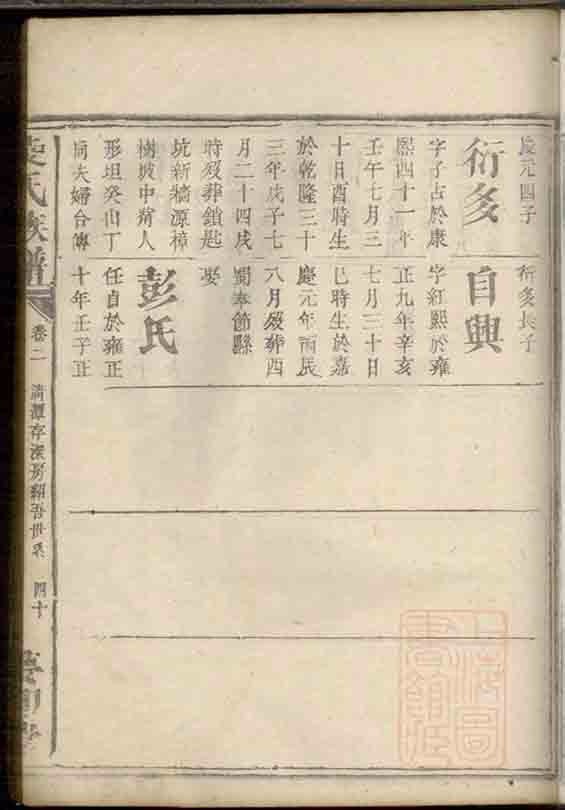 慶元四子
衍多
字子占於康
熙四十一年
壬午七月三
十日酉時生
於乾隆三十
三年戊子七
月二十四戌
時歿葬鎖匙
坑新牆源樟
樹坡中荷人
形坦癸山丁
向夫婦合傳
衍多長子
自興
字紅熙於雍
正九年辛亥
七月三十日
巳時生於嘉
慶元年丙辰
八月歿葬四
蜀奉節縣
娶
彭氏
任自於雍正
十年壬子正
氏族譜
卷二
清潭存深房紹吾世系
四十
上海圖
書館藏